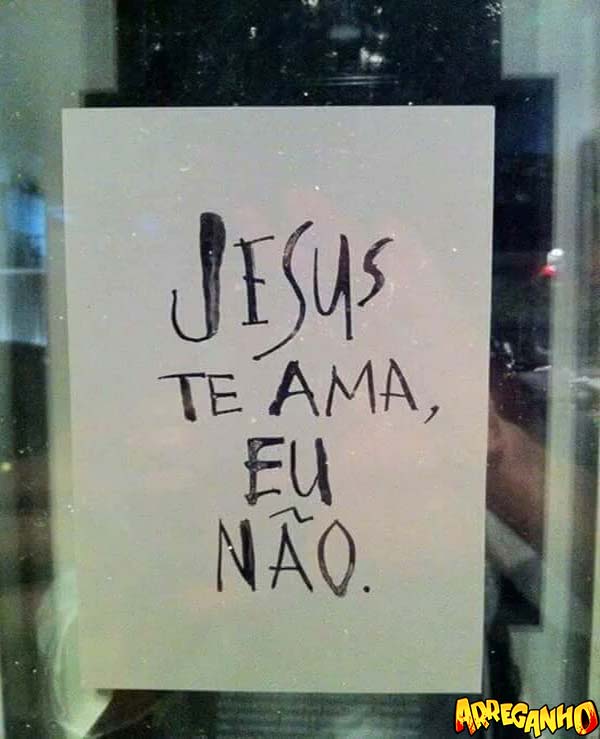 JESUS
TE AMA,
EU
NÃO.
ARREGANHO